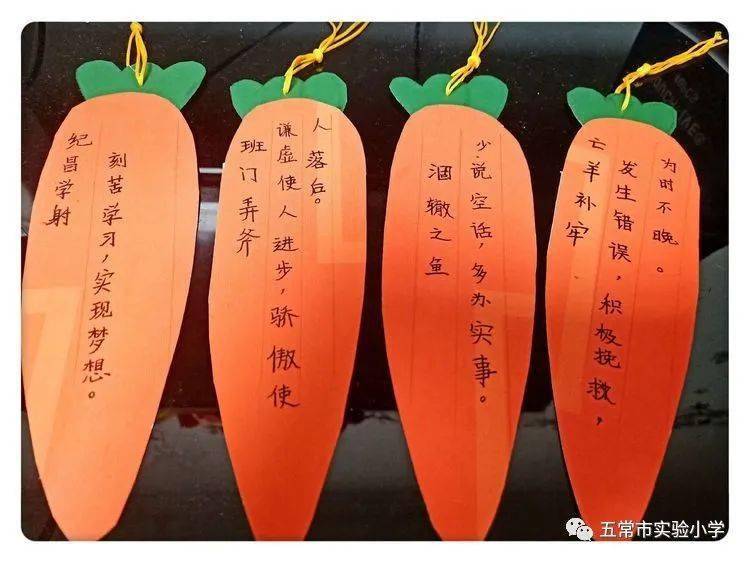 纪昌学射
刻苦学习，实现梦想。
班门弄斧
谦虚使人进步，骄傲使
人落后。
涸辙之鱼
少说空话，多办实事。
亡羊补牢
发生错误，积极挽救，
为时不晚。
五常市实验小学